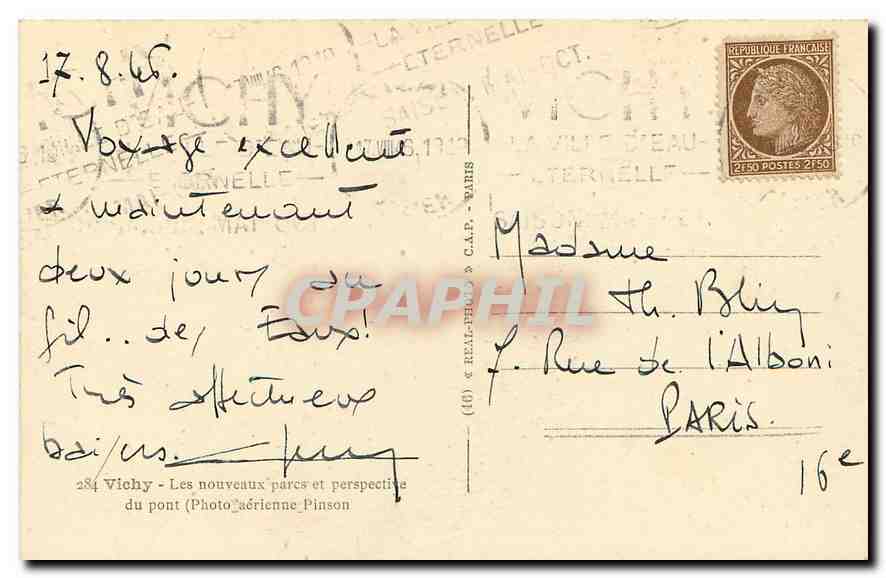 17.8.46.
Voyage excellent
+ maintenant
deux jours au
fil.. des Eaux!
Très affectueux
baisers.
284 Vichy - Les nouveaux parcs et perspective
du pont (Photo aérienne Pinson
(16) « REAL-PHOTO » C.A.P. - PARIS
REPUBLIQUE FRANÇAISE
2F50 POSTES 2F50
VICHY
LA VILLE D'EAU
ETERNELLE
Madame
Th.
7. Rue de l'Alboni
PARIS.
16e
CPAPHIL